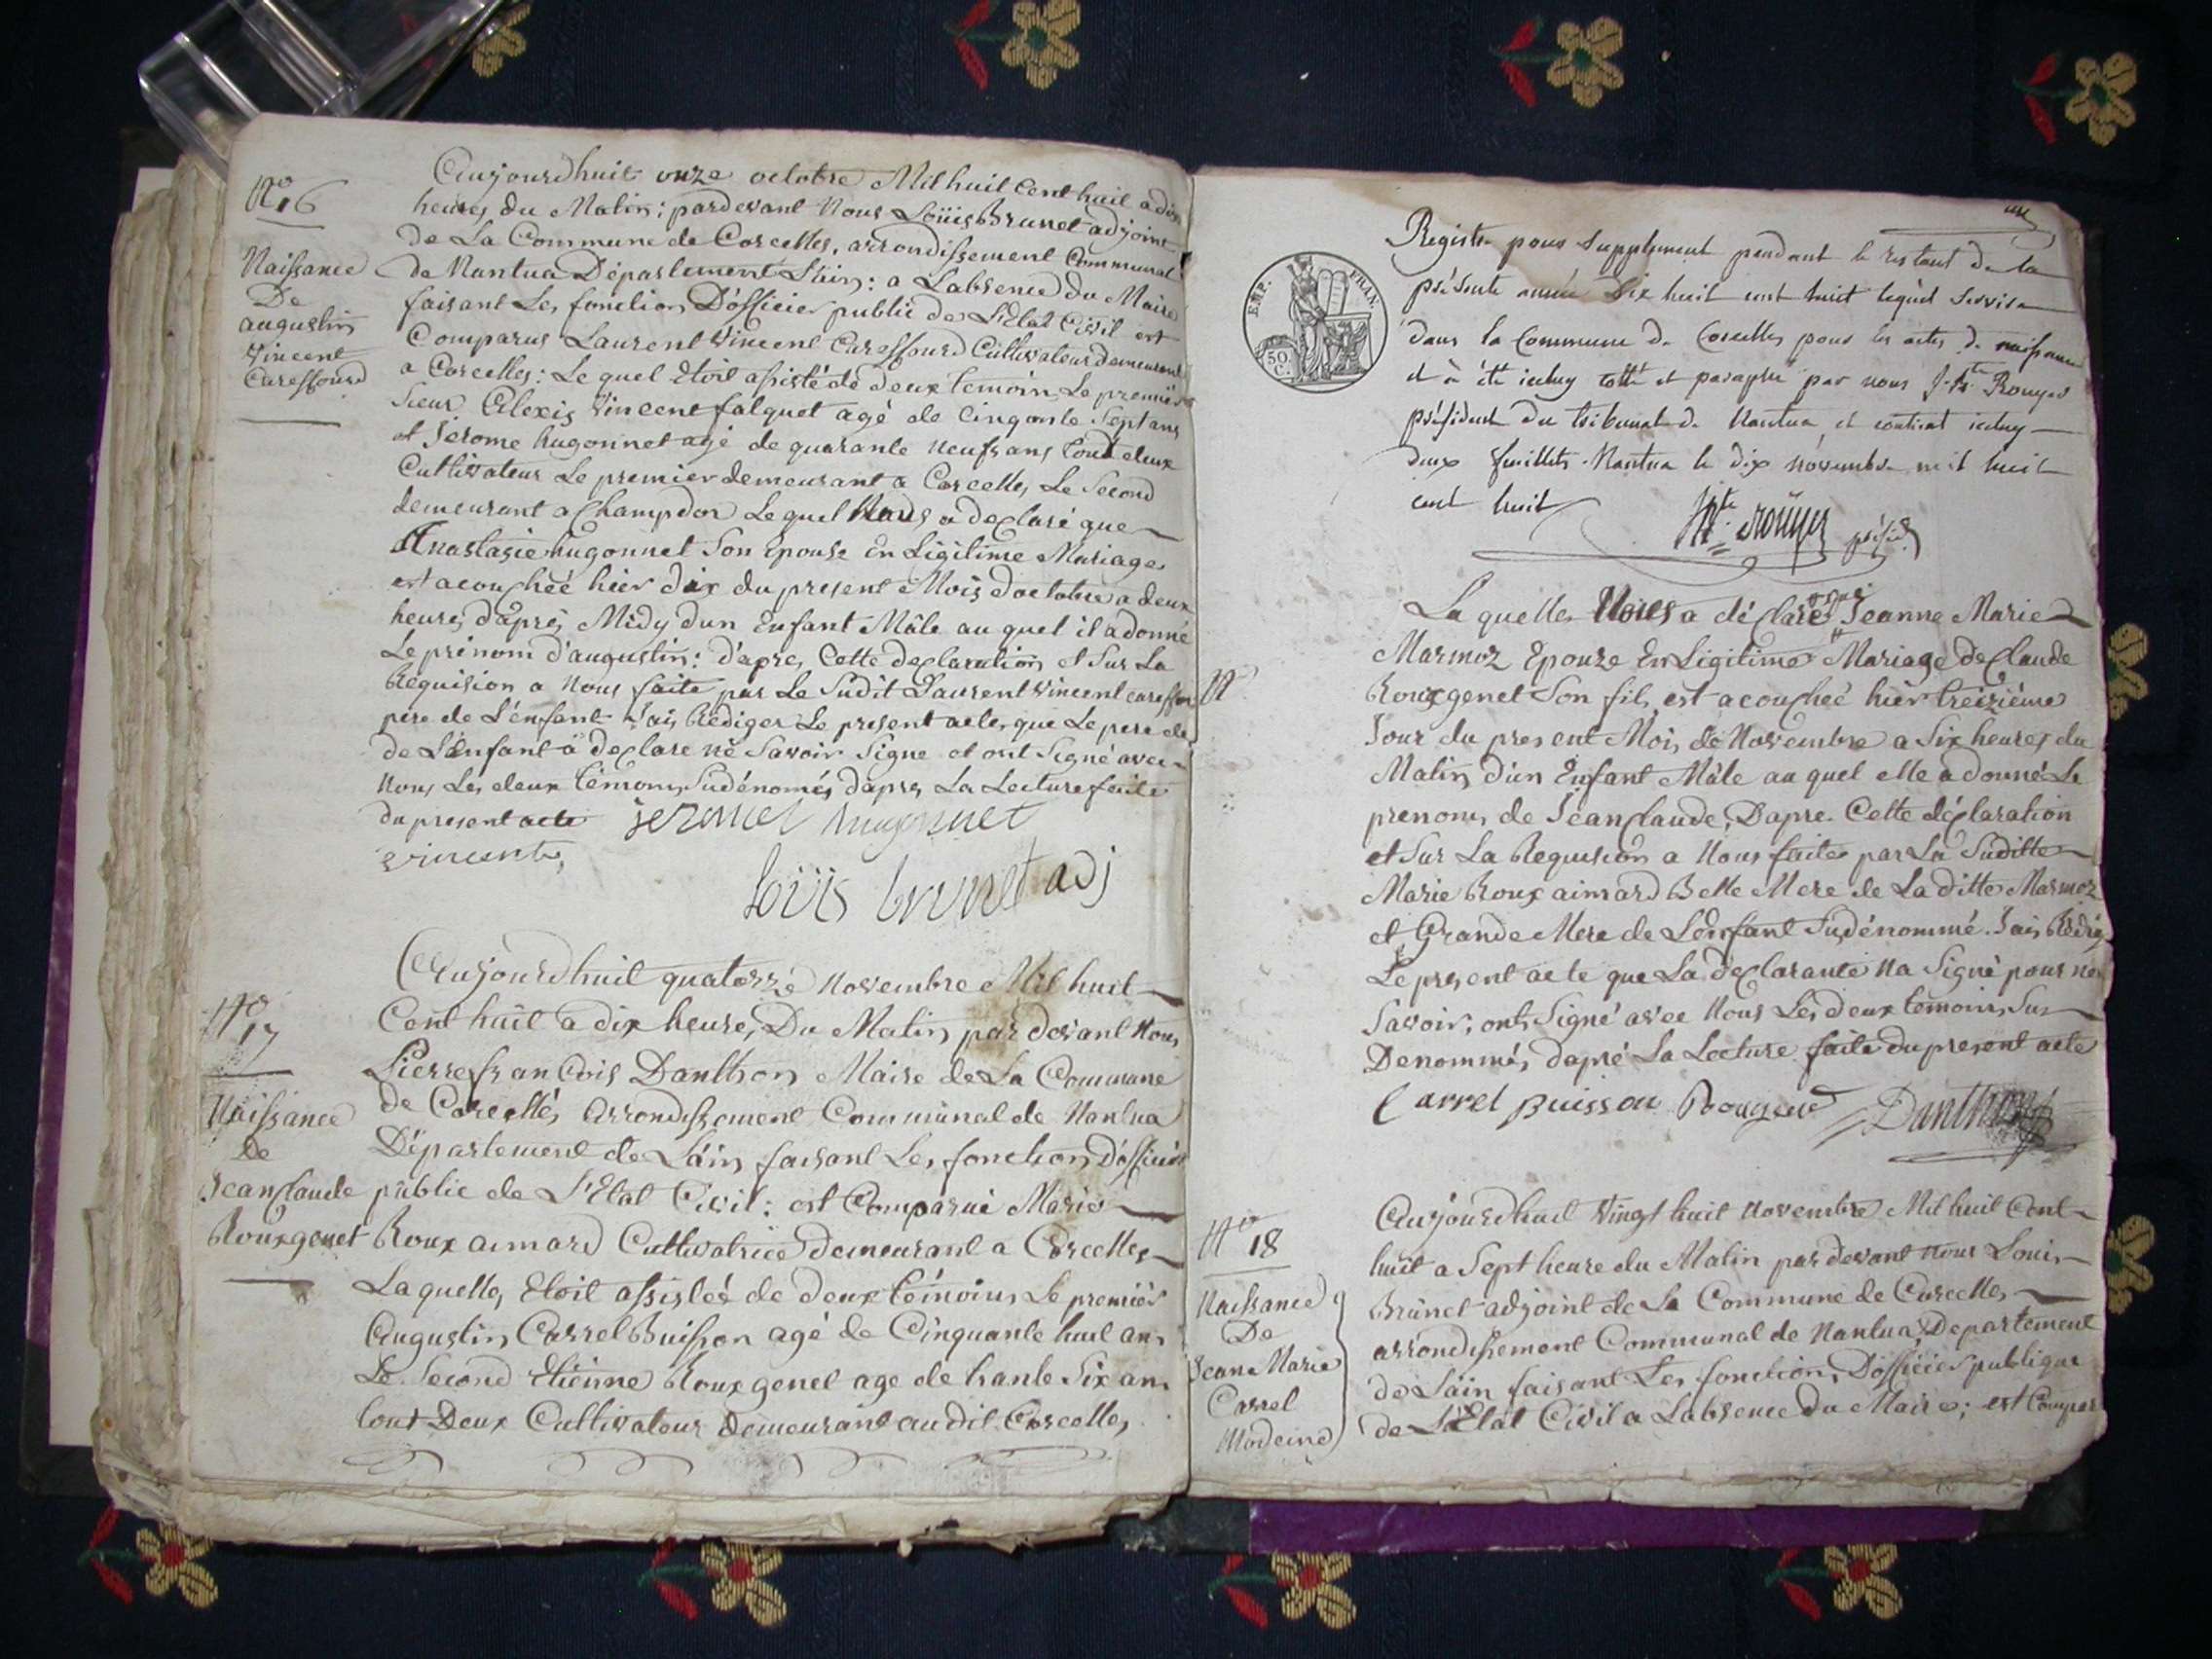 N.º 16
Naissance
De
augustin
Vincent
Caressourd
Aujourdhuit onze octobre Mil huit Cent huit a dix
heures du Matin; pardevant Nous Loüis Brunet adjoint
de La Commune de Corcelles, arrondissement Communal
de Nantua Département Lain; a Labsence du Maire
faisant Les fonction D'officier public de L'Etat Civil est
Comparus Laurent Vincent Caressourd Cultivateur demeurant
a Corcelles: Le quel Etoit assisté de deux temoin Le premier
Sieur Alexis Vincent falquet agé de Cinqante Sept ans
et Jerome hugonnet agé de quarante neufs ans tout deux
Cultivateur Le premier demeurant a Corcelles Le Second
demeurant a Champdor Le quel Nous a declaré que
Anastasie hugonnet Son Epouse En Ligitime Mariage
est acouchéé hier dix du present Mois doctobre a deux
heures daprés Midy dun Enfant Mâle au quel il a donné
Le prénom d'augustin: d'apres Cette declaration et Sur La
Requision a Nous faite par Le Sudit Laurent Vincent
pere de L'énfant Jais Rédiger Le present acte, que Le pere de
de L'énfant a declare nê Savoir Signe et ont Signé avec
Nous Les deux témoins Sudénomés dapres La Lecture faite
du present acte jeromel hugonnet
vincent,
loüis brunet adj
Nº 17
Naissance
de
Jean Claude
Rouxgenet
Aujourdhuit quatorze Novembre Mil huit
Cent huit a dix heure, Du Matin par devant Nous
Pierre francois Danthon Maire de La Commune
de Corcelles Arrondissement Communal de Nantua
Département de Lain faisant Les fonction D'officier
public de L'Etat Civil: est Comparue Marie
Roux aimard Cultivatrice demeurant a Corcelles
Laquelle, Etoit assisteé de deux témoins Le premier
Augustin Carrel Buisson agé de Cinquante huit ans
Le Second Etienne Rouxgenet age de trante Six ans
tout Deux Cultivateur Demeurant audit Corcelles,
Registre pour Supplement pendant le restant de la
présente année Dix huit cent huit lequel Servira
dans la Commune de Corcelles pour les actes de naissance
et à été iceluy cotté et paraphé par nous J-Bte Rouyer
président du tribunal de Nantua, et contient iceluy
deux feuillets. Nantua le dix novembre mil huit
cent huit
Bte. Roüyer présid.
EMP. FRAN.
50.
C.
N
La quelle Nous a déclaré que Jeanne Marie
Marmoz Epouze En Ligitime Mariage de Claude
Rouxgenet Son fils, est acoucheé hièr treizième
Jour du present Mois de Novembre a Six heures du
Matin d'un Enfant Mâle au quel elle a donné Le
prenom, de Jean Claude, Dapre. Cette déclaration
et Sur La Requision a Nous faite par La Suditte
Marie Roux aimard Belle Mere de La ditte Marmoz
et Grande Mere de Lénfant Sudénommé. Jais Rédigé
Le present acte que La declarante Na Signé pour ne
Savoir; onts Signé avec Nous Les deux temoins Sus
Denommés, dapré La Lecture faite du present acte
Carrel buisson Rougenet Danthon
Nº 18
Naissance
De
Jean Marie
Carrel
Modeind
Aujourdhuit Vingt huit Novembre Mil huit Cent
huit a Sept heure du Matin par devant nous Louis
Brunet adjoint de La Commune de Corcelles
arrondissement Communal de Nantua, Departement
de Lain faisant Les fonction, D'officier publique
de L'Etat Civil a Labsence du Maire; est Compar